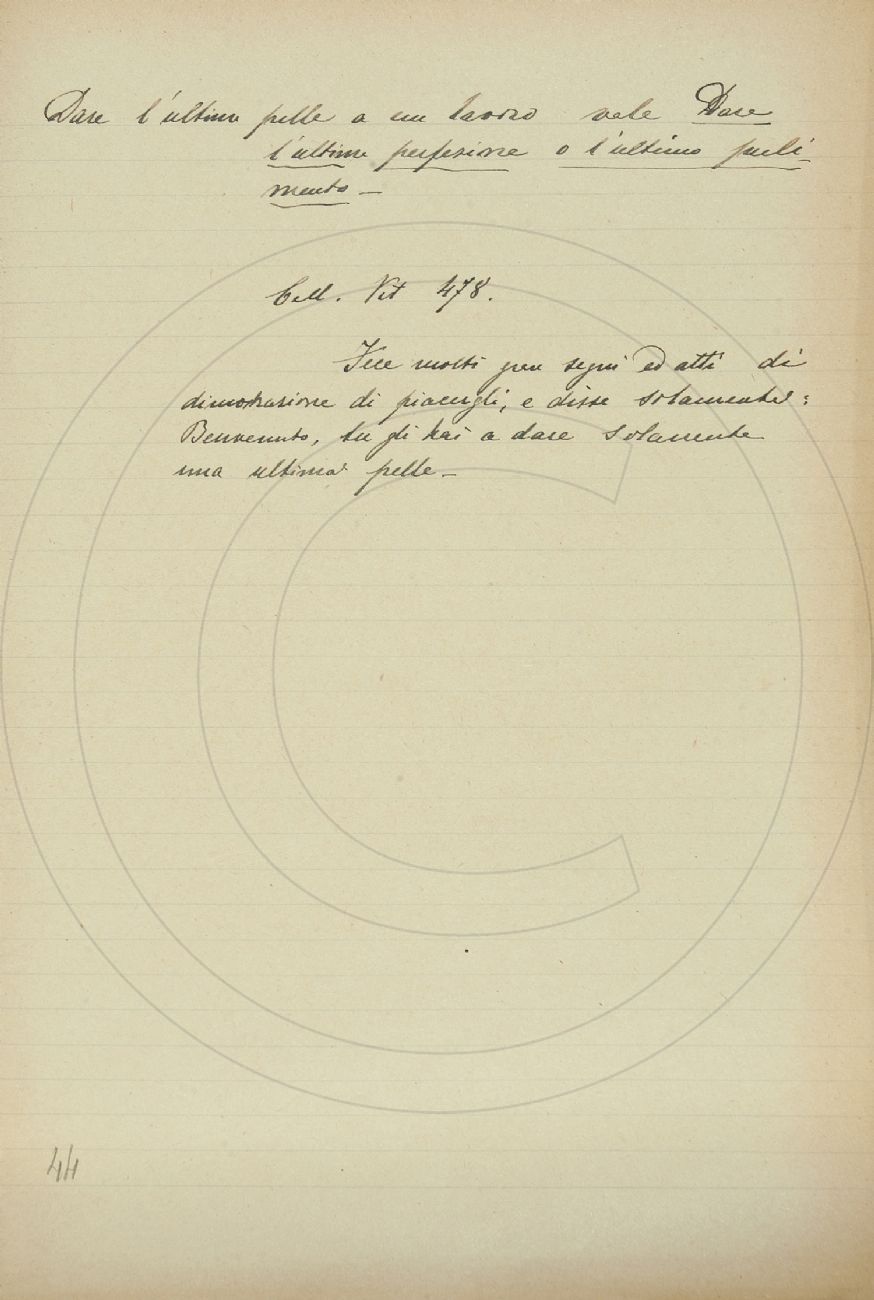 Dare l'ultima pelle a un lavoro vale Dare
l'ultima perfezione o l'ultimo puli-
mento —
Cell. Vit 478.
Fece molti gran segni ed atti di
dimostrazione di piacergli, e disse solamente:
Benvenuto, tu gli hai a dare solamente
una ultima pelle —
44